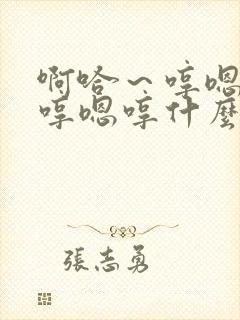 啊哈～哼嗯
哼嗯哼什麼
張志勇